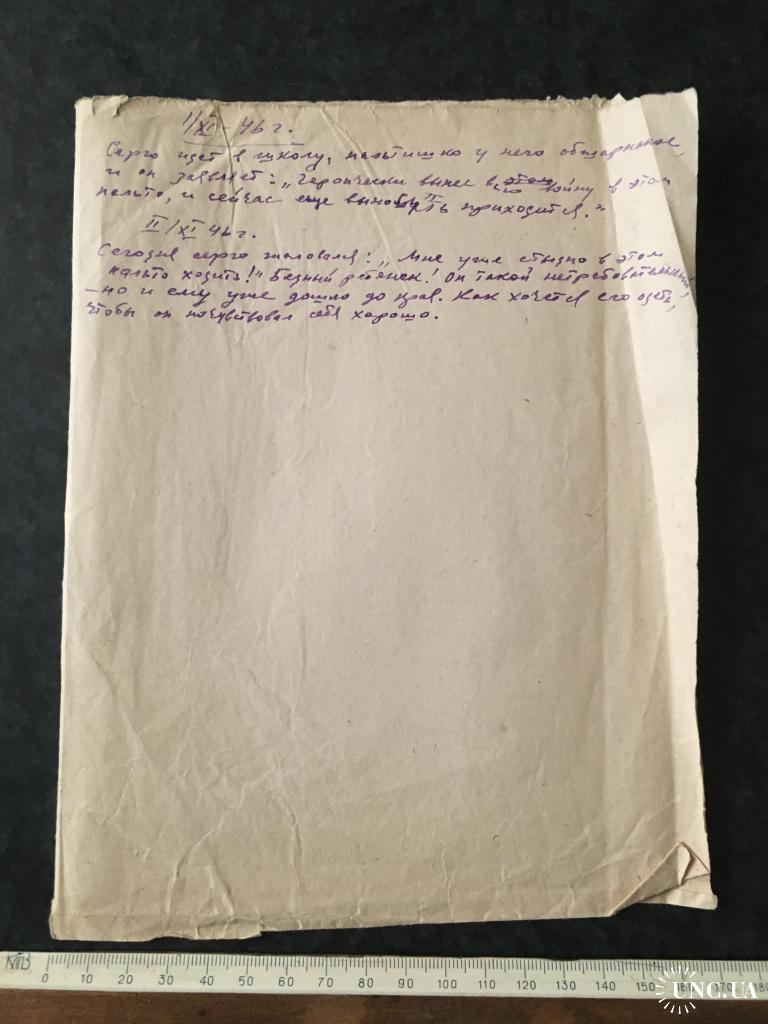 1/XI - 46 г.
Серго идет в школу, пальтишко у него обшарпанное,
и он заявляет: „Героически вынес всю войну в этом
пальто, и сейчас еще выносить приходится."
II/XI 46 г.
Сегодня Серго жаловался: „Мне уже стыдно в этом
пальто ходить!" Бедный ребенок! Он такой нетребовательный,
– но и ему уже дошло до края. Как хочется его одеть,
чтобы он почувствовал себя хорошо.
0 10 20 30 40 50 60 70 80 90 100 110 120 130 140 150 160 170 180
UNC.UA